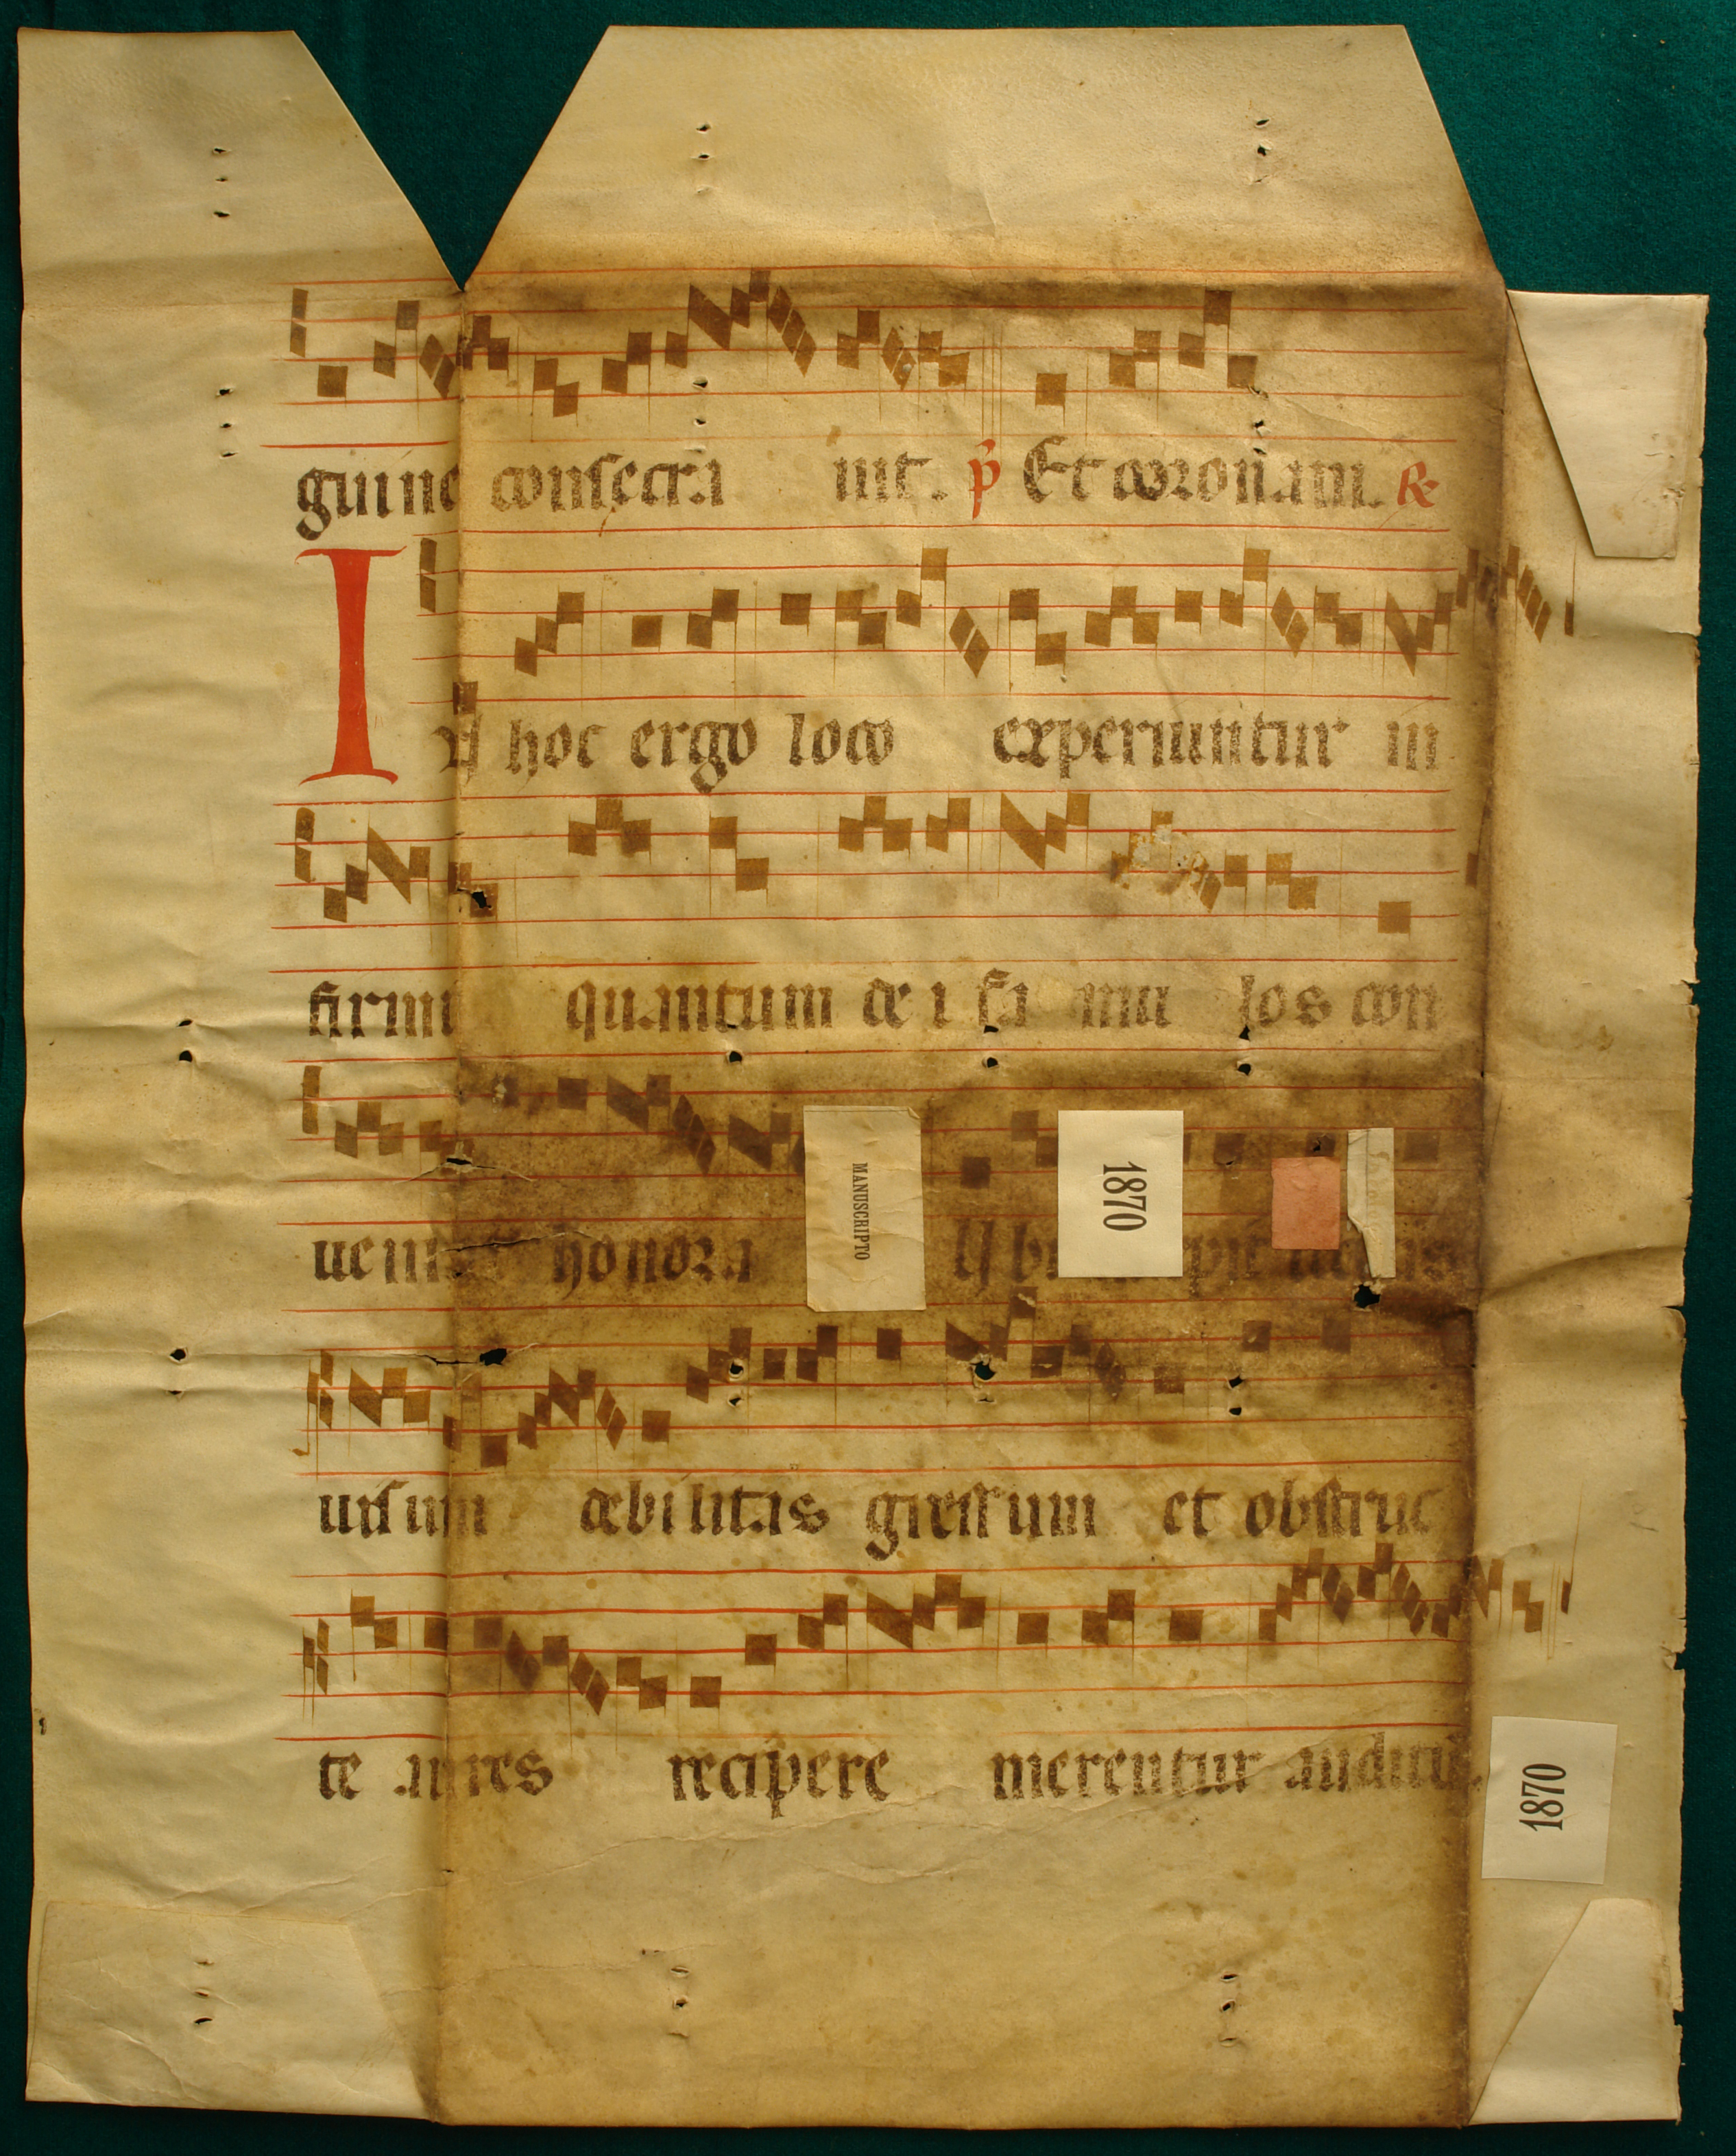 guine consecra uit. p̄ Et coronam. ℟
IN hoc ergo loco experiuntur in
firmi quantum dei famu los con
ueni honora
MANUSCRIPTO
1870
uisum debilitas gressum et obstruc
te aures recipere merentur auditū.
1870